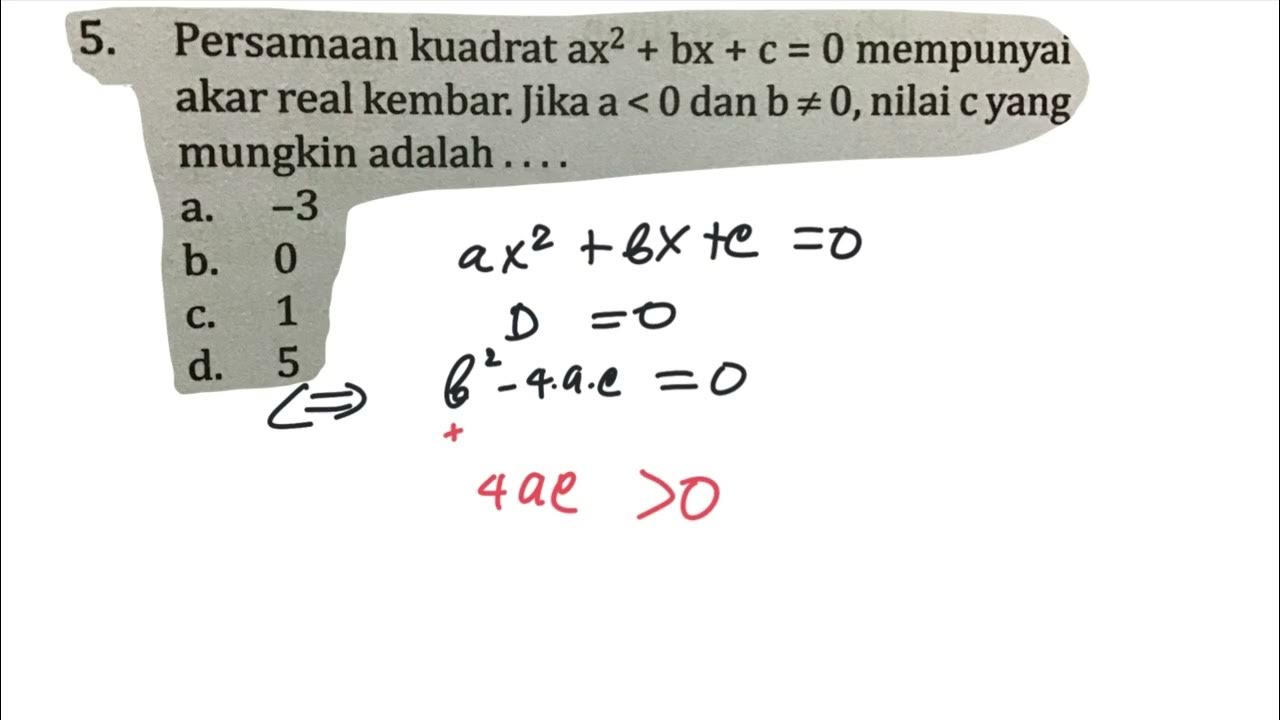 5. Persamaan kuadrat ax² + bx + c = 0 mempunyai
akar real kembar. Jika a < 0 dan b ≠ 0, nilai c yang
mungkin adalah . . . .
a. –3
b. 0
c. 1
d. 5
ax² + bx + c = 0
D = 0
⇔ b² - 4.a.c = 0
+
4ac > 0